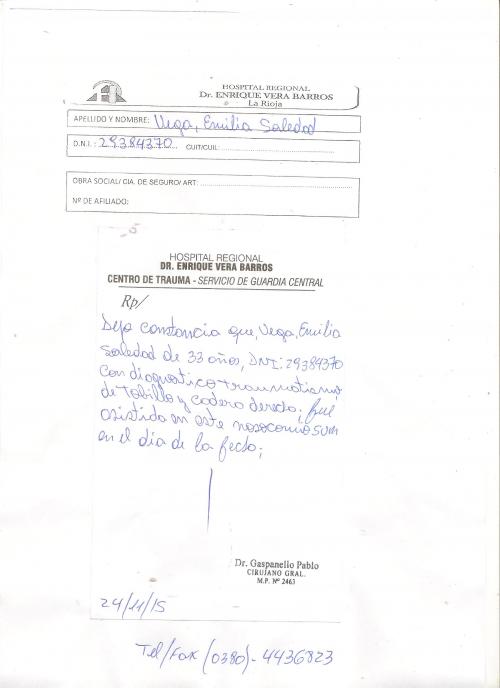 HOSPITAL REGIONAL
Dr. ENRIQUE VERA BARROS
La Rioja
APELLIDO Y NOMBRE: Vega, Emilia Soledad
D.N.I.: 29384370 CUIT/CUIL:
OBRA SOCIAL/ CIA. DE SEGURO/ ART:
Nº DE AFILIADO:
HOSPITAL REGIONAL
DR. ENRIQUE VERA BARROS
CENTRO DE TRAUMA - SERVICIO DE GUARDIA CENTRAL
Rp/
Dejo constancia que, Vega, Emilia
Soledad de 33 años, DNI: 29384370
con diagnostico traumatismo
de Tobillo y cadera derecha; fué
asistida en este nosocomio
en el día de la fecha;
Dr. Gaspanello Pablo
CIRUJANO GRAL.
M.P. Nº 2463
24/11/15
Tel/Fax (0380)- 4436823